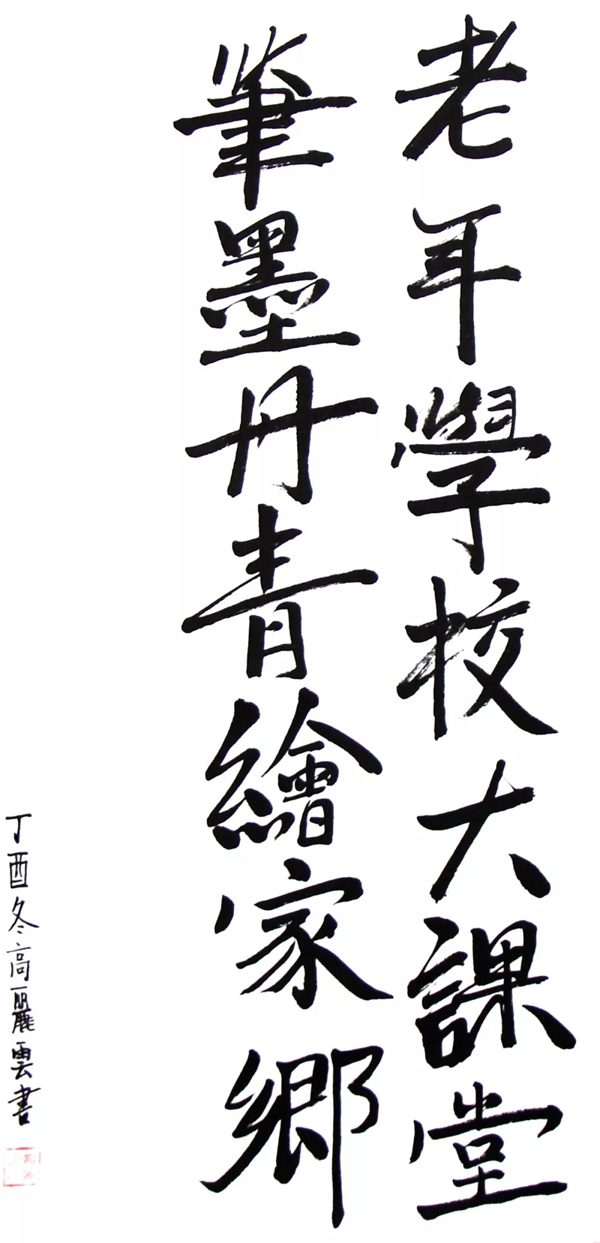 老年學校大課堂
筆墨丹青繪家鄉
丁酉冬高麗雲書